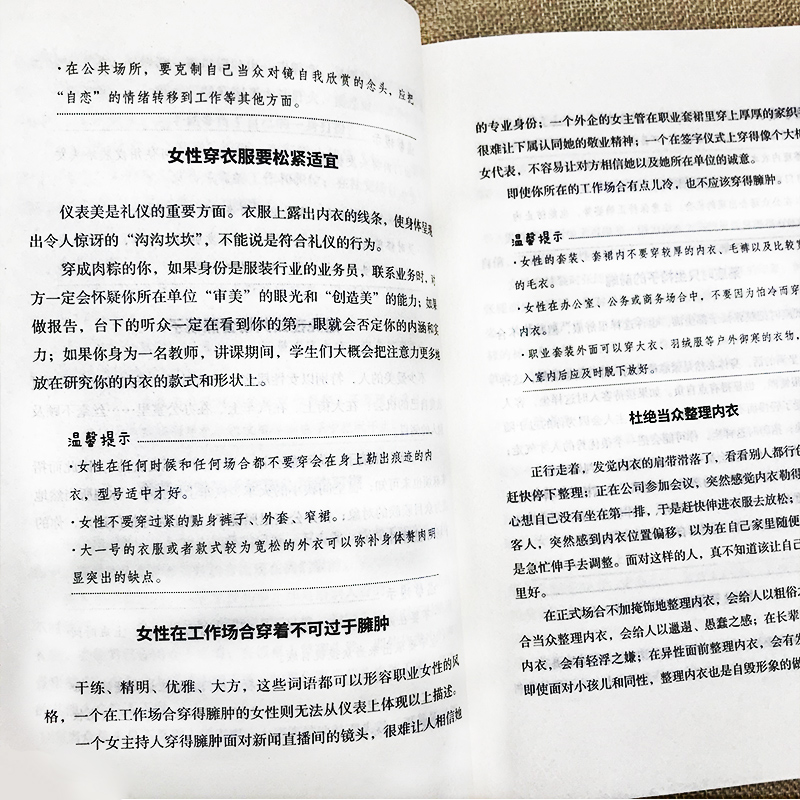 ·在公共场所，要克制自己当众对镜自我欣赏的念头，应把
“自恋”的情绪转移到工作等其他方面。
女性穿衣服要松紧适宜
仪表美是礼仪的重要方面。衣服上露出内衣的线条，使身体呈现
出令人惊讶的“沟沟坎坎”，不能说是符合礼仪的行为。
穿成肉粽的你，如果身份是服装行业的业务员，联系业务时，对
方一定会怀疑你所在单位“审美”的眼光和“创造美”的能力；如果
做报告，台下的听众一定在看到你的第一眼就会否定你的内涵和实
力；如果你身为一名教师，讲课期间，学生们大概会把注意力更多地
放在研究你的内衣的款式和形状上。
温馨提示
·女性在任何时候和任何场合都不要穿会在身上勒出痕迹的内
衣，型号适中才好。
·女性不要穿过紧的贴身裤子、外套、窄裙。
·大一号的衣服或者款式较为宽松的外衣可以弥补身体赘肉明
显突出的缺点。
女性在工作场合穿着不可过于臃肿
干练、精明、优雅、大方，这些词语都可以形容职业女性的风
格，一个在工作场合穿得臃肿的女性则无法从仪表上体现以上描述。
一个女主持人穿得臃肿面对新闻直播间的镜头，很难让人相信她
的专业身份；一个外企的女主管在职业套裙里穿上厚厚的家织
很难让下属认同她的敬业精神；一个在签字仪式上穿得像个大棉
女代表，不容易让对方相信她以及她所在单位的诚意。
即使你所在的工作场合有点儿冷，也不应该穿得臃肿。
温馨提示
·女性的套装、套裙内不要穿较厚的内衣、毛裤以及比较宽
的毛衣。
·女性在办公室、公务或商务场合中，不要因为怕冷而穿
内衣。
·职业套装外面可以穿大衣、羽绒服等户外御寒的衣物，
入室内后应及时脱下放好。
杜绝当众整理内衣
正行走着，发觉内衣的肩带滑落了，看看别人都行色
赶快停下整理；正在公司参加会议，突然感觉内衣勒得
心想自己没有坐在第一排，于是赶快伸进衣服去放松；
客人，突然感到内衣位置偏移，以为在自己家里随便
是急忙伸手去调整。面对这样的人，真不知道该让自己
里好。
在正式场合不加掩饰地整理内衣，会给人以粗俗之
合当众整理内衣，会给人以邋遢、愚蠢之感；在长辈
内衣，会有轻浮之嫌；在异性面前整理内衣，会有发
即使面对小孩儿和同性，整理内衣也是自毁形象的做